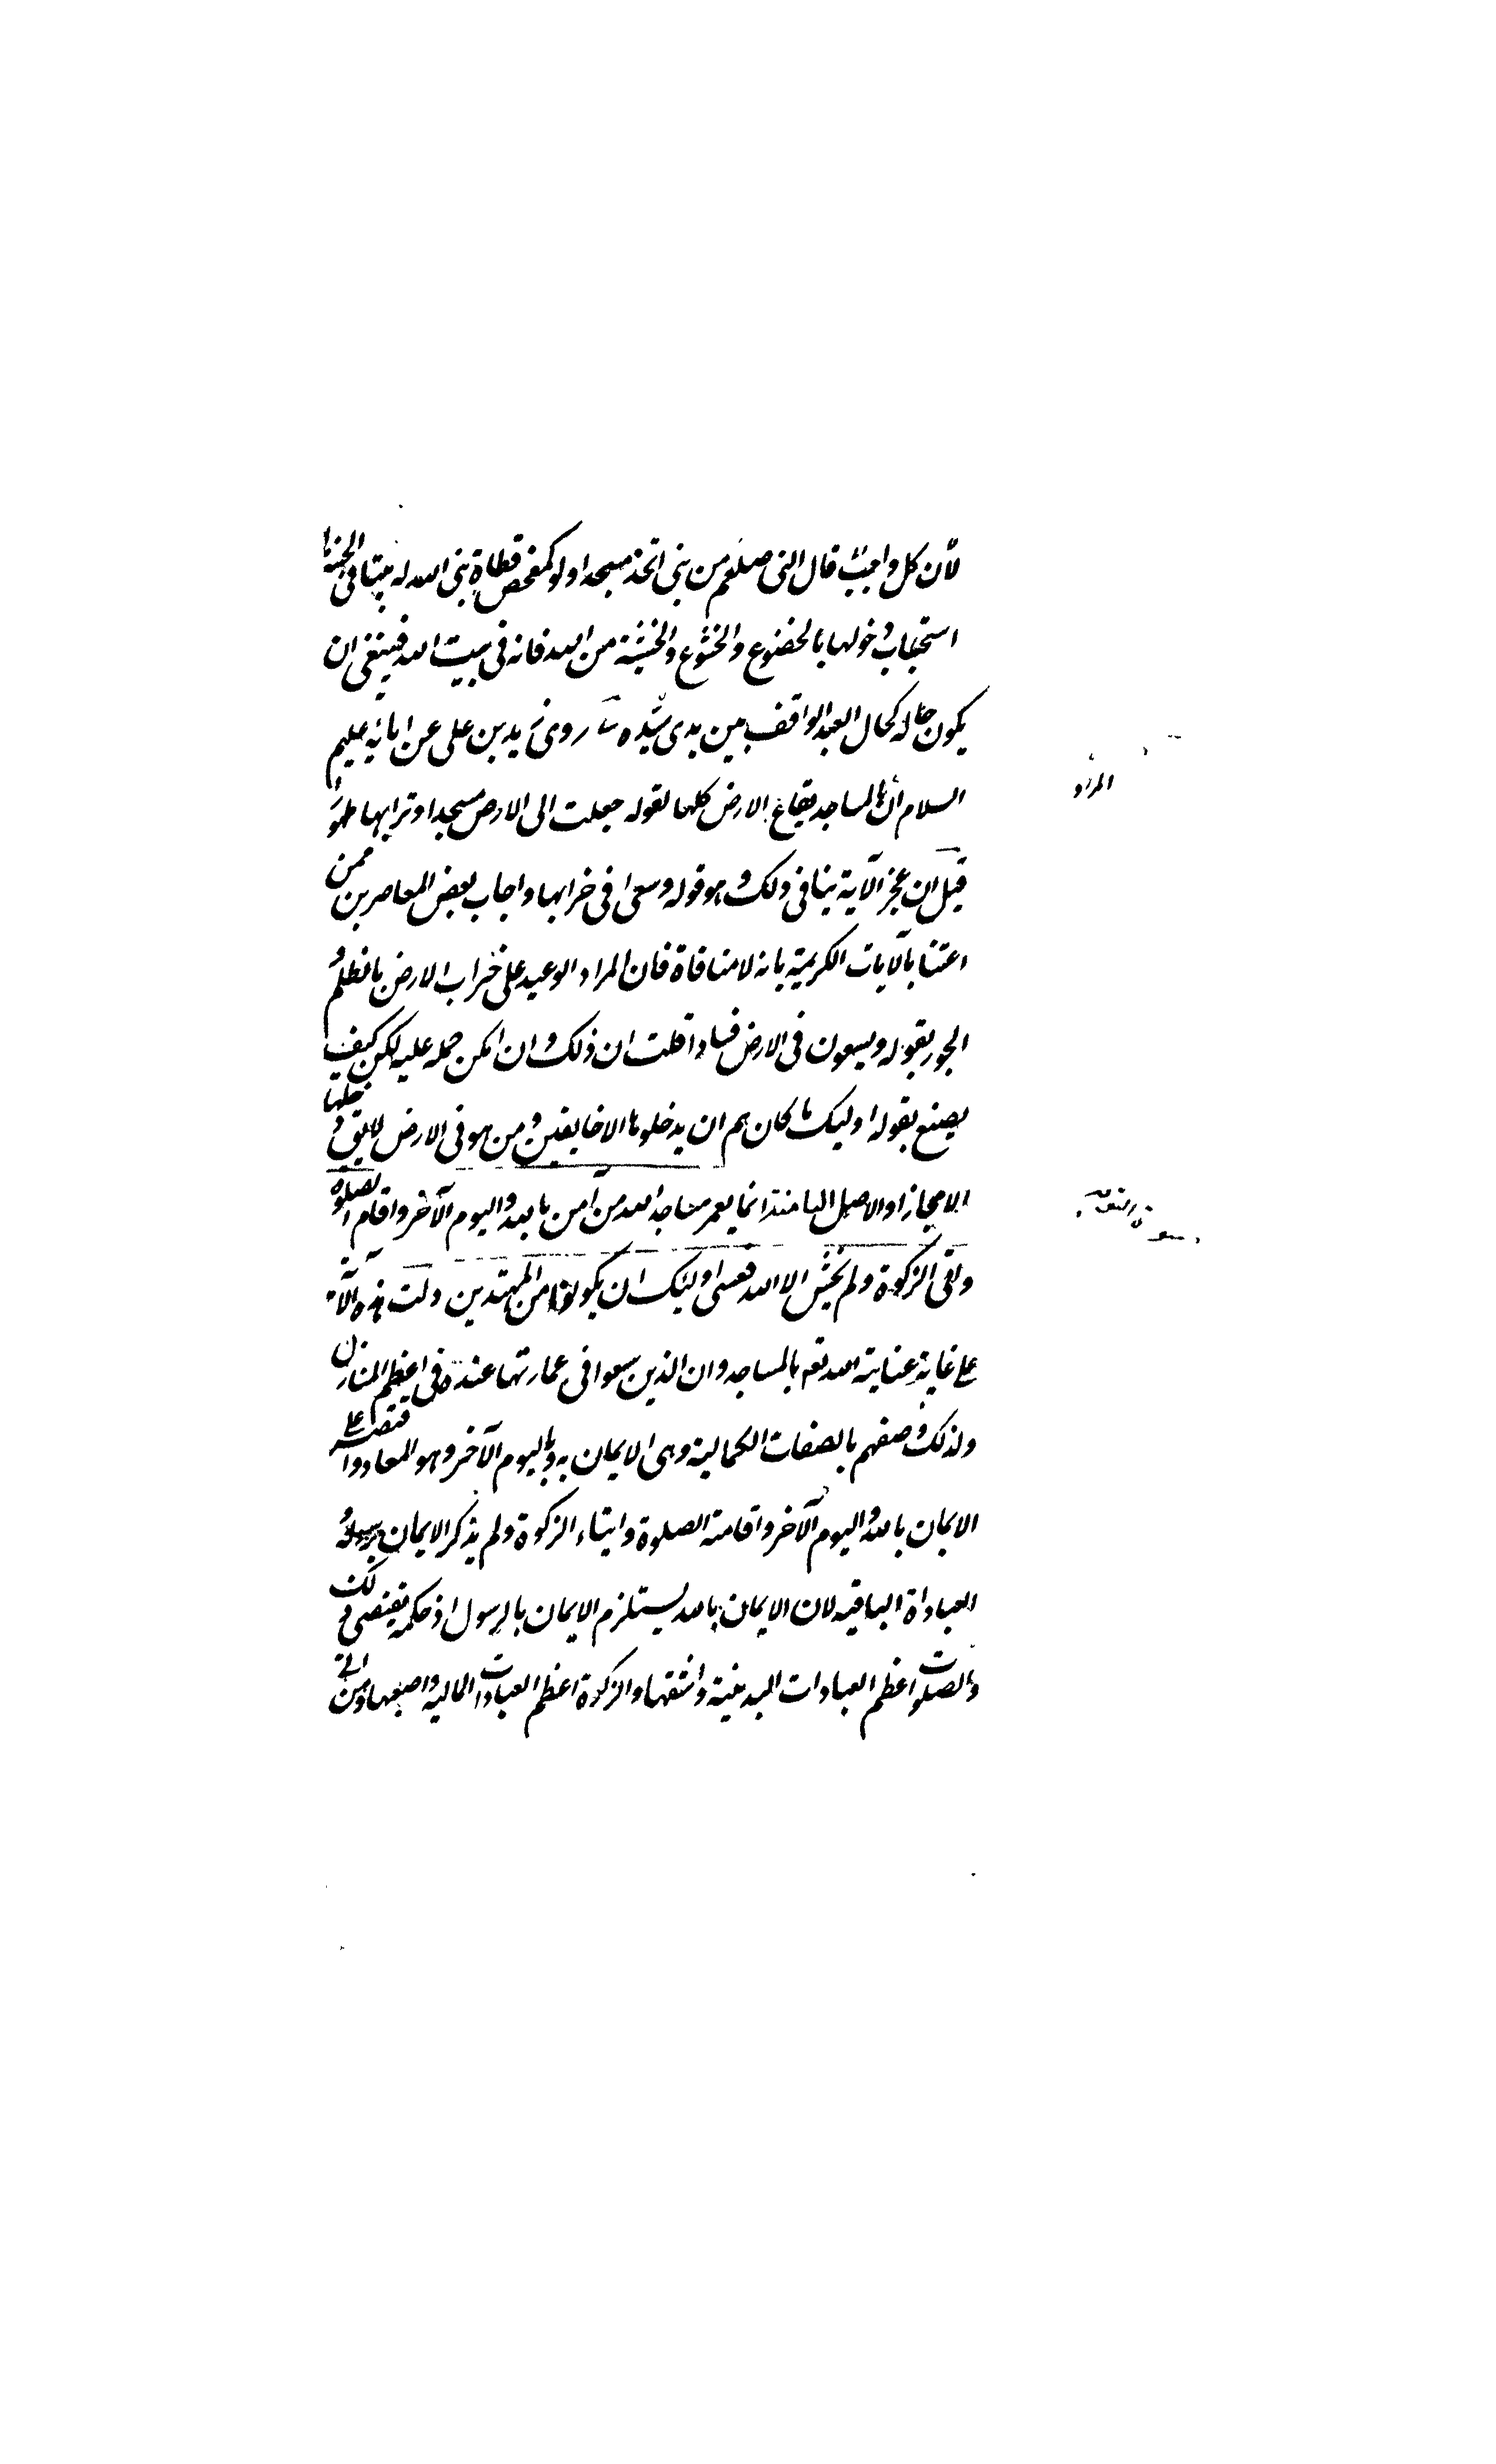 لأن كل واجب قال النبى صلعم من بنى اتخذ مسجدا ولو كمفحص قطاة بنى الله له بيتا فى الجنة
استحباب دخولها بالخضوع والخشوع والخشية من الله فانه فى بيت الله فينبغى ان
يكون حاله كحال العبد الواقف بين يدى سيده روى زيد بن على عن ابائه عليهم
السلام ان المساجد بقاع الارض كلها لقوله جعلت الى الارض مسجدا وترابها طهورا
المراد
قيل ان عجز الآية ينافى ذلك وهو قوله وسعى فى خرابها واجاب بعض المعاصرين ممن
اعتنا بالآيات الكريمة بانه لا منافاة فان المراد الوعيد على خراب الارض بالظلم و
الجور بقوله ويسعون فى الارض فسادا قلت ان ذلك وان امكن حمله عليه لكن كيف
يصنع بقوله اوليك ما كان لهم ان يدخلوها الا خايفين ومن هو فى الارض لا يليق دخلها
الا مجازا والاصل الثامنة انما يعمر مساجد الله من آمن بالله واليوم الآخر واقام الصلوة
واتى الزكوة ولم يخش الا الله فعسى اوليك ان يكونوا من المهتدين دلت هذه الآية
على غاية عناية الله تعه بالمساجد وان الذين سعوا فى عمارتها عنده فى اعظم المنازل
ولذلك وصفهم بالصفات الكمالية وهى الايمان به وباليوم الآخر وهو المعاد واقتصر على
الايمان بالله واليوم الآخر واقامة الصلوة وايتاء الزكوة ولم يذكر الايمان برسوله و
العباداة الباقيه لان الايمان بالله يستلزم الايمان بالرسول اذ حكمه يقتضى ذلك
والصلوات اعظم العبادات البدنية واشقها والزكوة اعظم العبادات الماليه واصعبها ومن